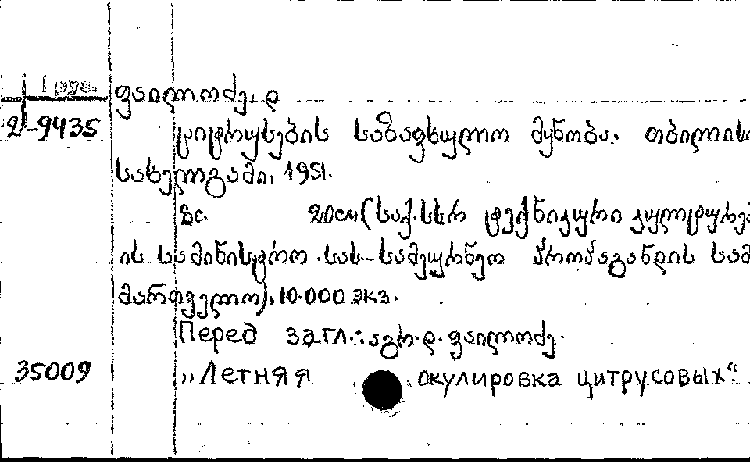 ფაილოძე, დ
2-9435 ციტრუსების საზაფხულო მყნობა. თბილისი
სახელგამი, 1951.
3с. 20см (საქ.სსრ ტექნიკური კულტურებ
ის სამინისტრო. სას-სამეურნეო პროპაგანდის სამ
მართველო), 10.000 экз.
Перед загл.: აგრ. დ. ფაილოძე.
35009 „Летняя окулировка цитрусовых“